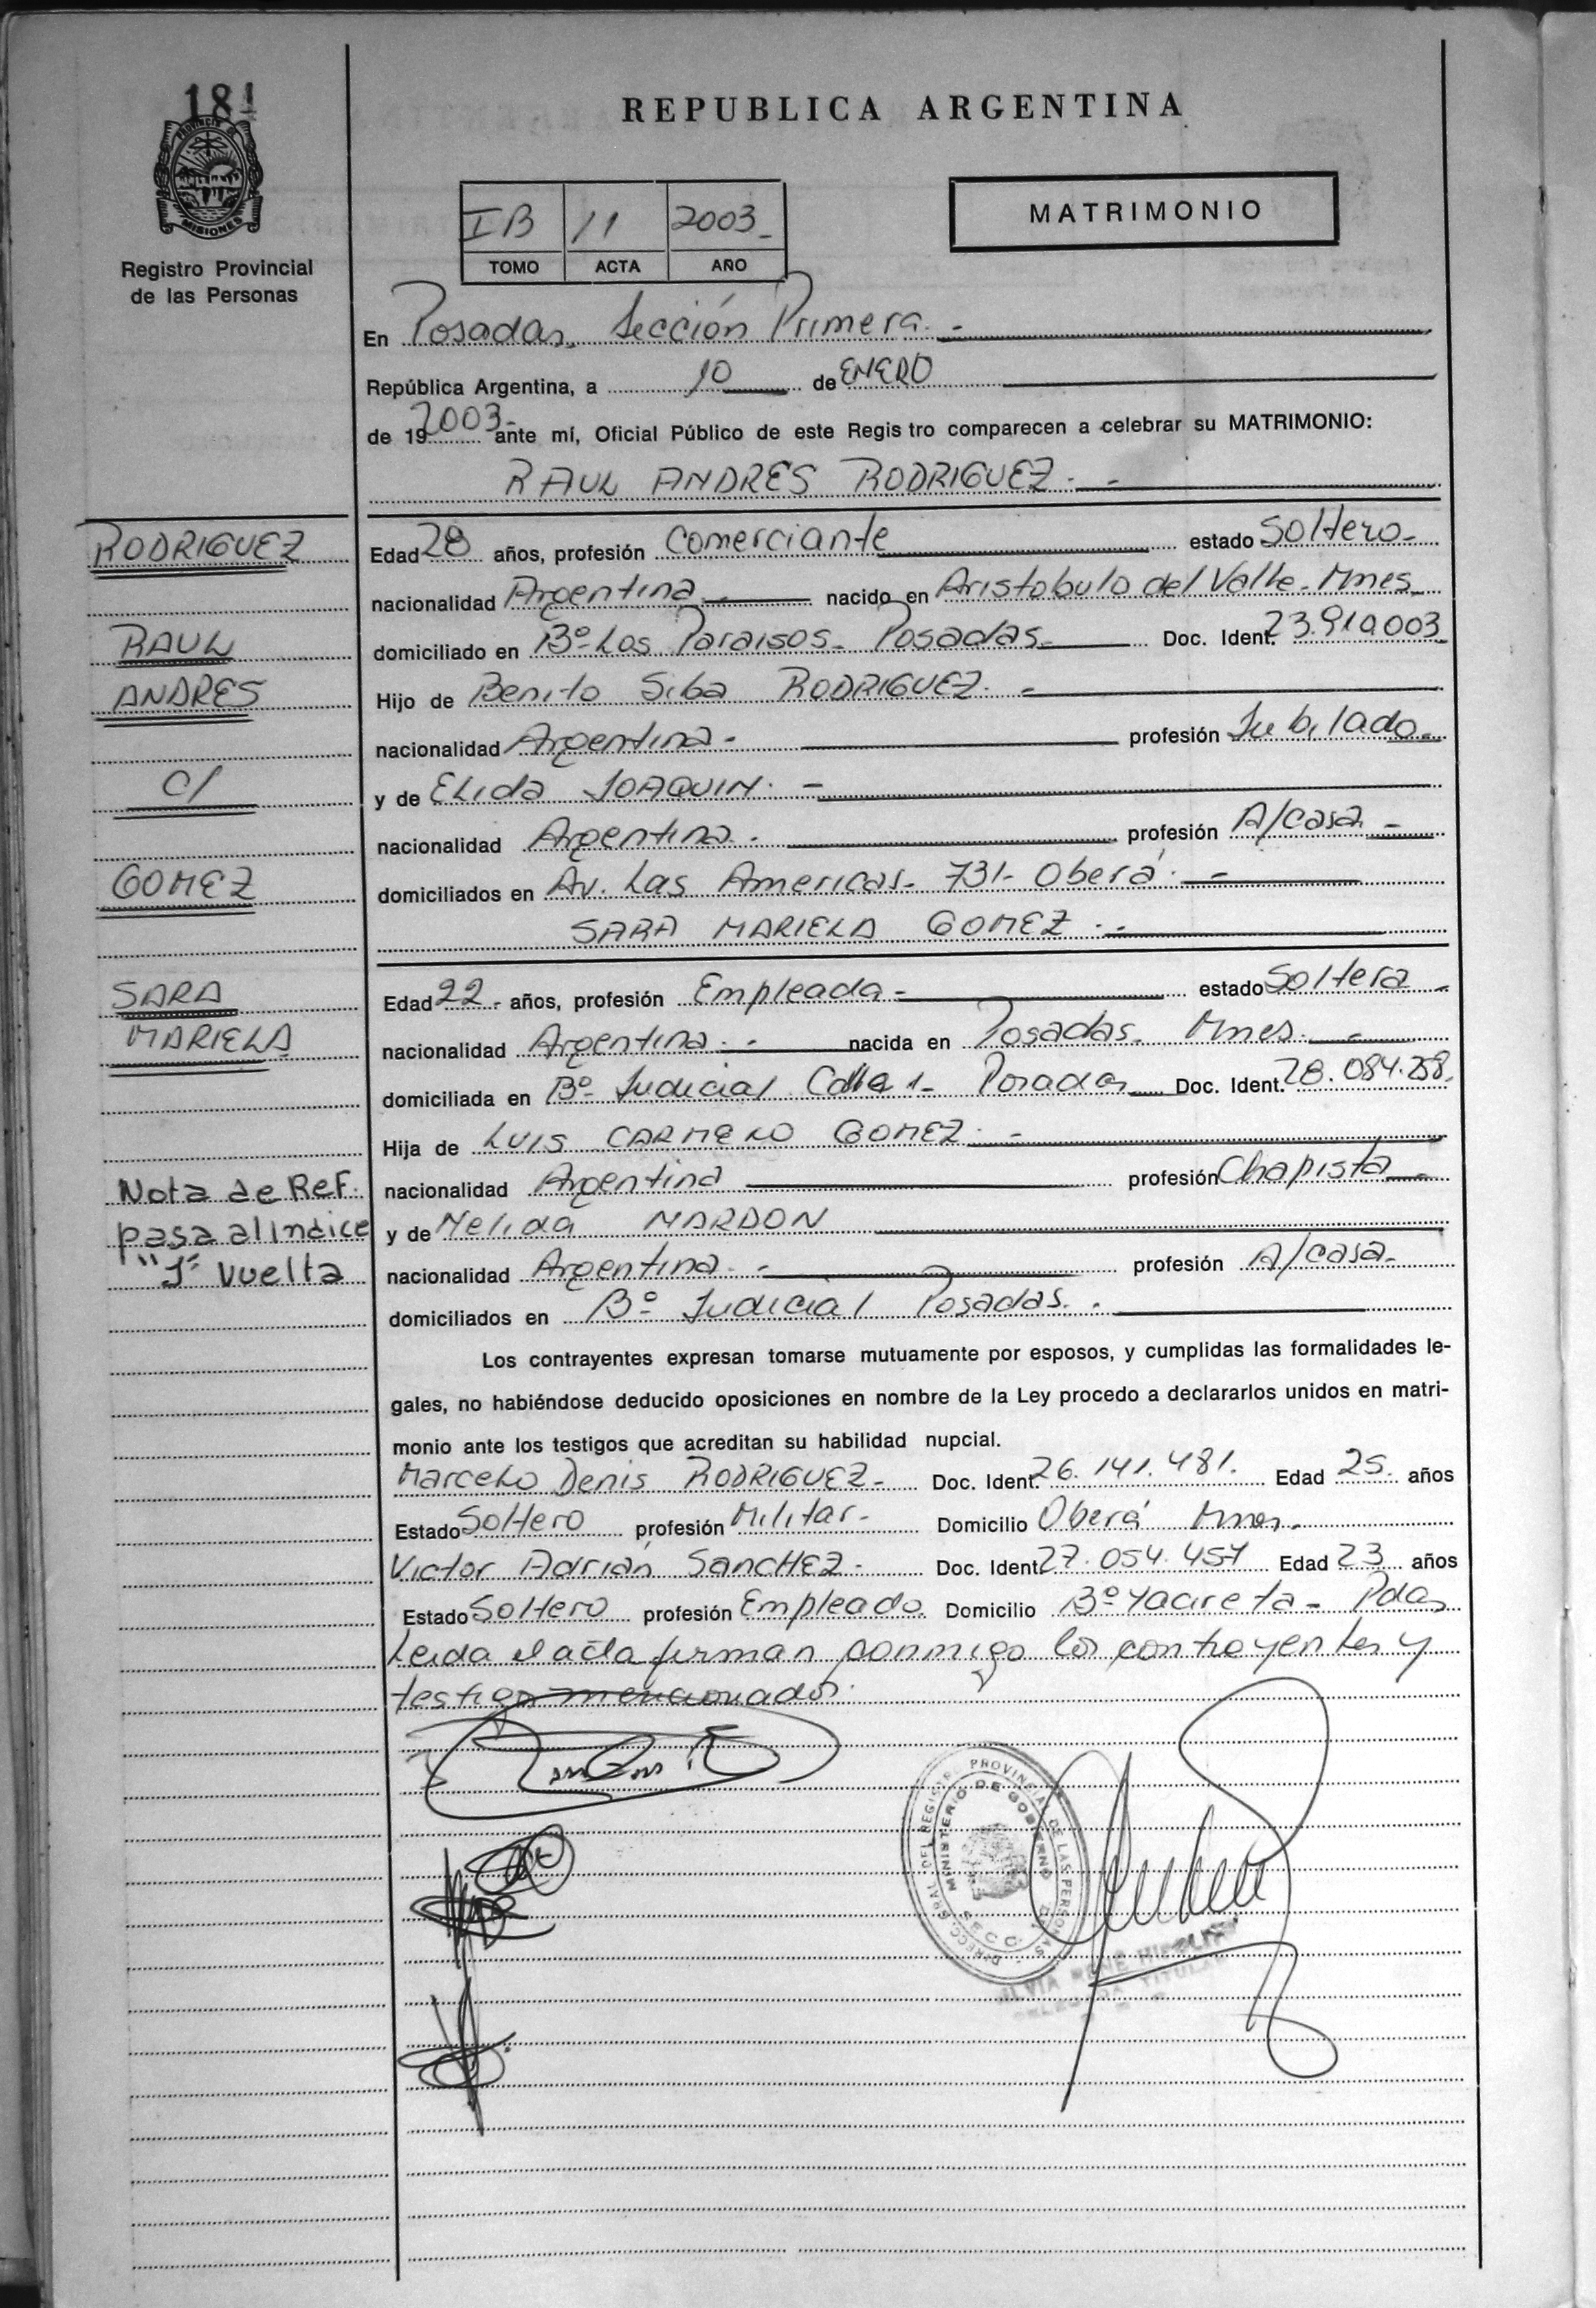 181
PROVINCIA DE
MISIONES
Registro Provincial
de las Personas
REPUBLICA ARGENTINA
IB 11 2003_
TOMO ACTA AÑO
MATRIMONIO
En Posadas, Sección Primera. -
República Argentina, a 10 de ENERO
de 19 2003- ante mí, Oficial Público de este Regis tro comparecen a celebrar su MATRIMONIO:
RAUL ANDRES RODRIGUEZ. -
RODRIGUEZ
RAUL
ANDRES
C/
GOMEZ
SARA
MARIELA
Nota de Ref.
pasa al indice
"1" Vuelta
Edad 28 años, profesión Comerciante estado Soltero-
nacionalidad Argentina nacido en Aristobulo del Valle- Mnes
domiciliado en Bº Los Paraisos- Posadas- Doc. Ident. 23.910.003
Hijo de Benito Siba RODRIGUEZ. -
nacionalidad Argentina- profesión Jubilado-
y de ELida JOAQUIN. -
nacionalidad Argentina. - profesión A/casa. -
domiciliados en Av. Las Americas- 731- Oberá. -
SARA MARIELA GOMEZ. -
Edad 22- años, profesión Empleada- estado Soltera -
nacionalidad Argentina. - nacida en Posadas- Mnes. -
domiciliada en Bº Judicial Calle 1- Posadas Doc. Ident. 28.084.258.
Hija de LUIS CARMELO GOMEZ. -
nacionalidad Argentina profesión Chapista -
y de Nelida MARDON
nacionalidad Argentina. - profesión A/casa-
domiciliados en Bº Judicial Posadas. -
Los contrayentes expresan tomarse mutuamente por esposos, y cumplidas las formalidades le-
gales, no habiéndose deducido oposiciones en nombre de la Ley procedo a declararlos unidos en matri-
monio ante los testigos que acreditan su habilidad nupcial.
Marcelo Denis RODRIGUEZ- Doc. Ident. 26.141.481. Edad 25. años
Estado Soltero profesión Militar- Domicilio Oberá Mnes.
Victor Adrián SANCHEZ- Doc. Ident. 27.054.457 Edad 23 años
Estado Soltero profesión Empleado. Domicilio Bº Yacireta- Pdas
Leida el acta firman conmigo los contrayentes y
testigos mencionados.
DIRECC. GRAL. DEL REGISTRO PROVINCIAL DE LAS PERSONAS
MINISTERIO DE GOBIERNO
SECC.
TITULAR